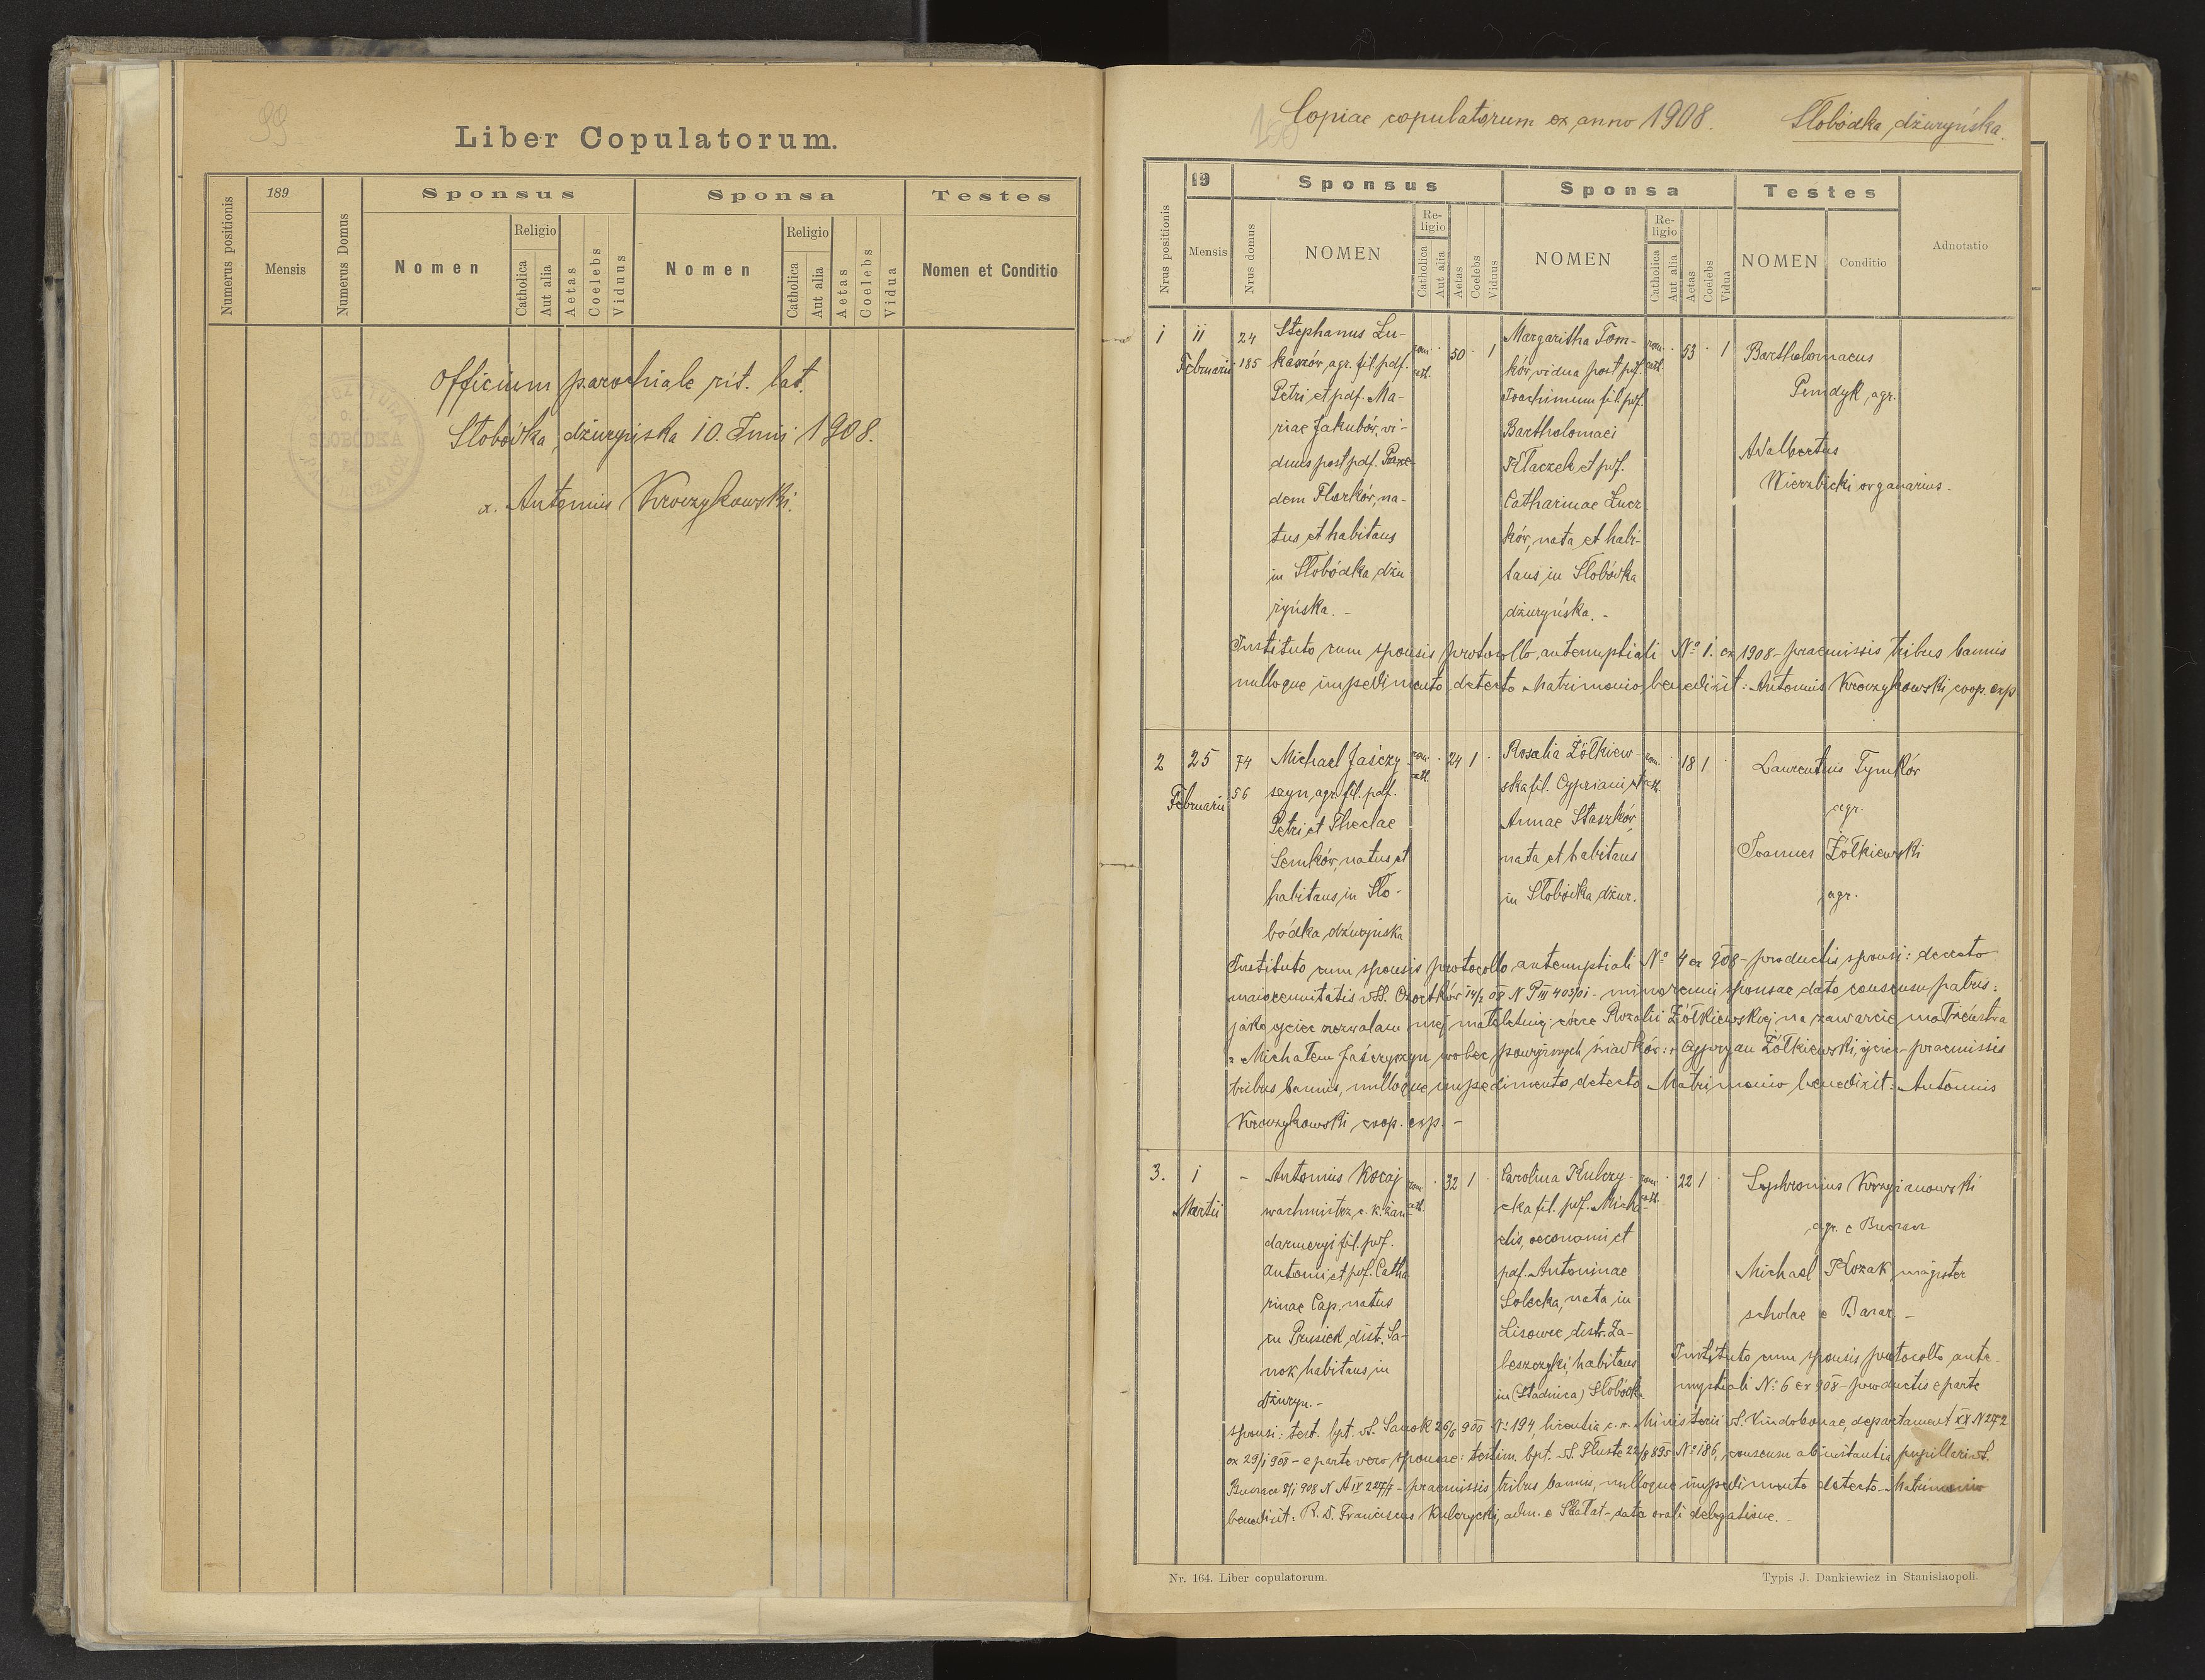 99
Liber Copulatorum.
Numerus positionis
189
Mensis
Numerus Domus
Sponsus
Nomen
Religio
Catholica
Aut alia
Aetas
Coelebs
Viduus
Sponsa
Nomen
Religio
Catholica
Aut alia
Aetas
Coelebs
Vidua
Testes
Nomen et Conditio
Officium parochiale rit. lat.
Słobódka dżuryńska 10. Junii 1908.
x. Antonius Kroczykowski.
SŁOBÓDKA
100
Copiae copulatorum ex anno 1908. Słobódka dżuryńska.
Nrus positionis
19
Mensis
Nrus domus
Sponsus
NOMEN
Religio
Catholica
Aut alia
Aetas
Coelebs
Viduus
Sponsa
NOMEN
Religio
Catholica
Aut alia
Aetas
Coelebs
Vidua
Testes
NOMEN
Conditio
Adnotatio
1
11
Februarii
24
185
Stephanus Łu-
kaszów, agr. fil. pdf.
Petri et pdf. Ma-
riae Jakubów, vi-
duus post pdf.
dem Florków, na-
tus et habitans
in Słobódka dżu
ryńska. -
rom.
cath.
50
1
Margaritha Tom-
ków, vidua post pdf.
Joachimum fil. pdf.
Bartholomaei
Kłaczek et pdf.
Catharinae Łucz
ków, nata et habi-
tans in Słobódka
dżuryńska. -
rom.
cath.
53
1
Bartholomaeus
Pendyk, agr.
Adalbertus
Wierzbicki organarius.
Instituto cum sponsis protocollo antenuptiali No 1. ex 1908 - praemissis tribus bannis
nulloque impedimento detecto Matrimonio benedixit: Antonius Kroczykowski coop. exp.
2
25
Februarii
74
56
Michael Jaśczy
szyn, agr. fil. pdf.
Petri et Theclae
Semków, natus et
habitans in Sło-
bódka dżuryńska
rom.
cath.
24
1
Rosalia Żółkiew-
ska fil. Cypriani et
Annae Staszków,
nata et habitans
in Słobódka dżur.
rom.
cath.
18
1
Laurentius Tymków
agr.
Joannes Żółkiewski
agr.
Instituto cum sponsis protocollo antenuptiali No 4 ex 908 - productis sponsi: decreto
maiorennitatis dd. Czortków 14/2 08 N P III 403/01 - minorenni sponsae dato consensu patris:
jako ojciec zezwalam mej małoletniej córce Rozalii Żółkiewskiej na zawarcie małżeństwa
z Michałem Jaśczyszyn wobec powyższych świadków: + Cypryan Żółkiewski, ojciec - praemissis
tribus bannis, nulloque impedimento detecto Matrimonio benedixit: Antonius
Kroczykowski coop. exp. -
3.
1
Martii
-
Antonius Kocaj
wachmistrz c. k. żan-
darmeryi fil. pdf.
Antonii et pdf. Catha
rinae Cap, natus
in Prusiek, dist. Sa-
nok, habitans in
Dżuryn. -
rom.
cath.
32
1
Carolina Kulczy-
cka fil. pdf. Micha-
elis, oeconomi et
pdf. Antoninae
Solecka, nata in
Lisowce, distr. Za-
leszczyki, habitans
in (Stadnica) Słobódk
rom.
cath.
22
1
Sophronius Krzyżanowski
agr. e Buczacz
Michael Kozak, magister
scholae e Baraz. -
Instituto cum sponsis protocollo ante-
nuptiali No 6 ex 908 - productis e parte
sponsi: test. bpt. d. Sanok 26/6 900 No 194, licentia c. r. Ministerii d. Vindobonae, departament XX N 272
ex 29/1 908 - e parte vero sponsae: testim. bpt. d. Tłuste 22/8 895 No 186, consensu ab instantia pupillari d.
Buczacz 8/1 908 N A IV 227/7 - praemissis tribus bannis, nulloque impedimento detecto - Matrimonio
benedixit: R. D. Franciscus Kulczycki, adm. e Skałat - data orali delegatione. -
Nr. 164. Liber copulatorum.
Typis J. Dankiewicz in Stanislaopoli.